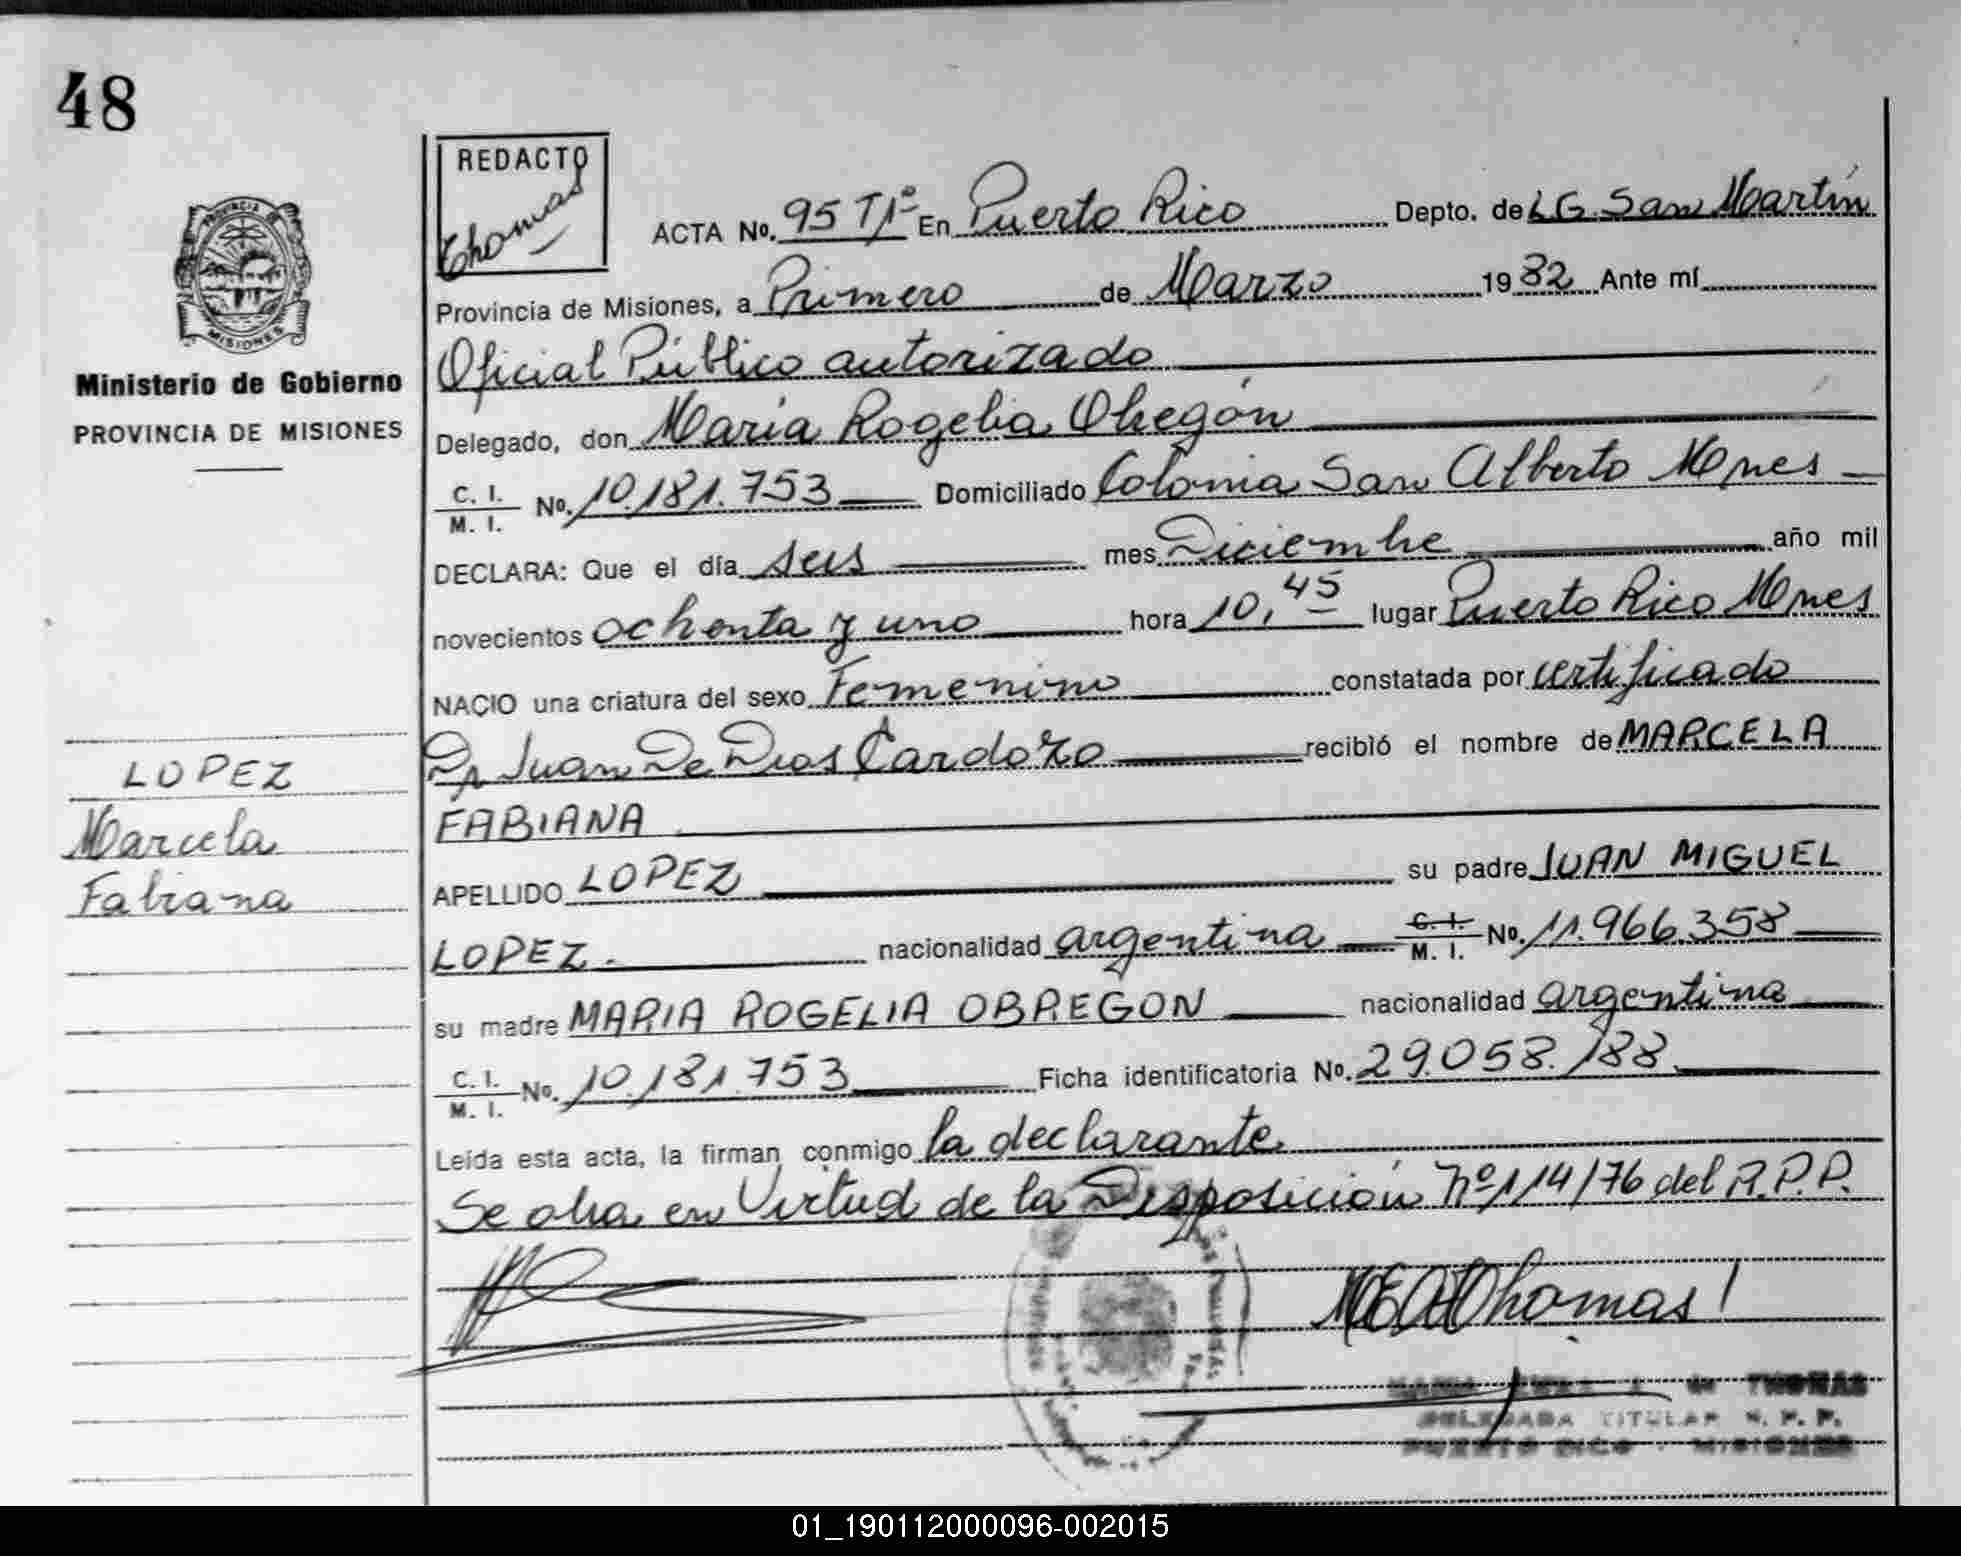 48
REDACTO
Thomas
ACTA No. 95 Tº1º En Puerto Rico Depto. de LG. San Martín
Provincia de Misiones, a Primero de Marzo 1982 Ante mí
PROVINCIA DE
MISIONES
Ministerio de Gobierno
PROVINCIA DE MISIONES
Oficial Público autorizado
Delegado, don María Rogelia Obregón
C. I.
M. I. No. 10.181.753 Domiciliado Colonia San Alberto Mnes
DECLARA: Que el día seis mes Diciembre año mil
novecientos ochenta y uno hora 10,45 lugar Puerto Rico Mnes
NACIO una criatura del sexo Femenino constatada por certificado
Dr Juan De Dios Cardozo recibió el nombre de MARCELA
FABIANA
LOPEZ
Marcela
Fabiana
APELLIDO LOPEZ su padre JUAN MIGUEL
LOPEZ. nacionalidad argentina C. I.
M. I. No. 11.966.358
su madre MARIA ROGELIA OBREGON nacionalidad argentina
C. I.
M. I. No. 10.181.753 Ficha identificatoria No. 29.058.188
Leída esta acta, la firman conmigo la declarante
Se obra en Virtud de la Disposición Nº 114/76 del R.P.P.
Thomas
THOMAS
DELEGADA TITULAR R. P. P.
PUERTO RICO - MISIONES
01_190112000096-002015